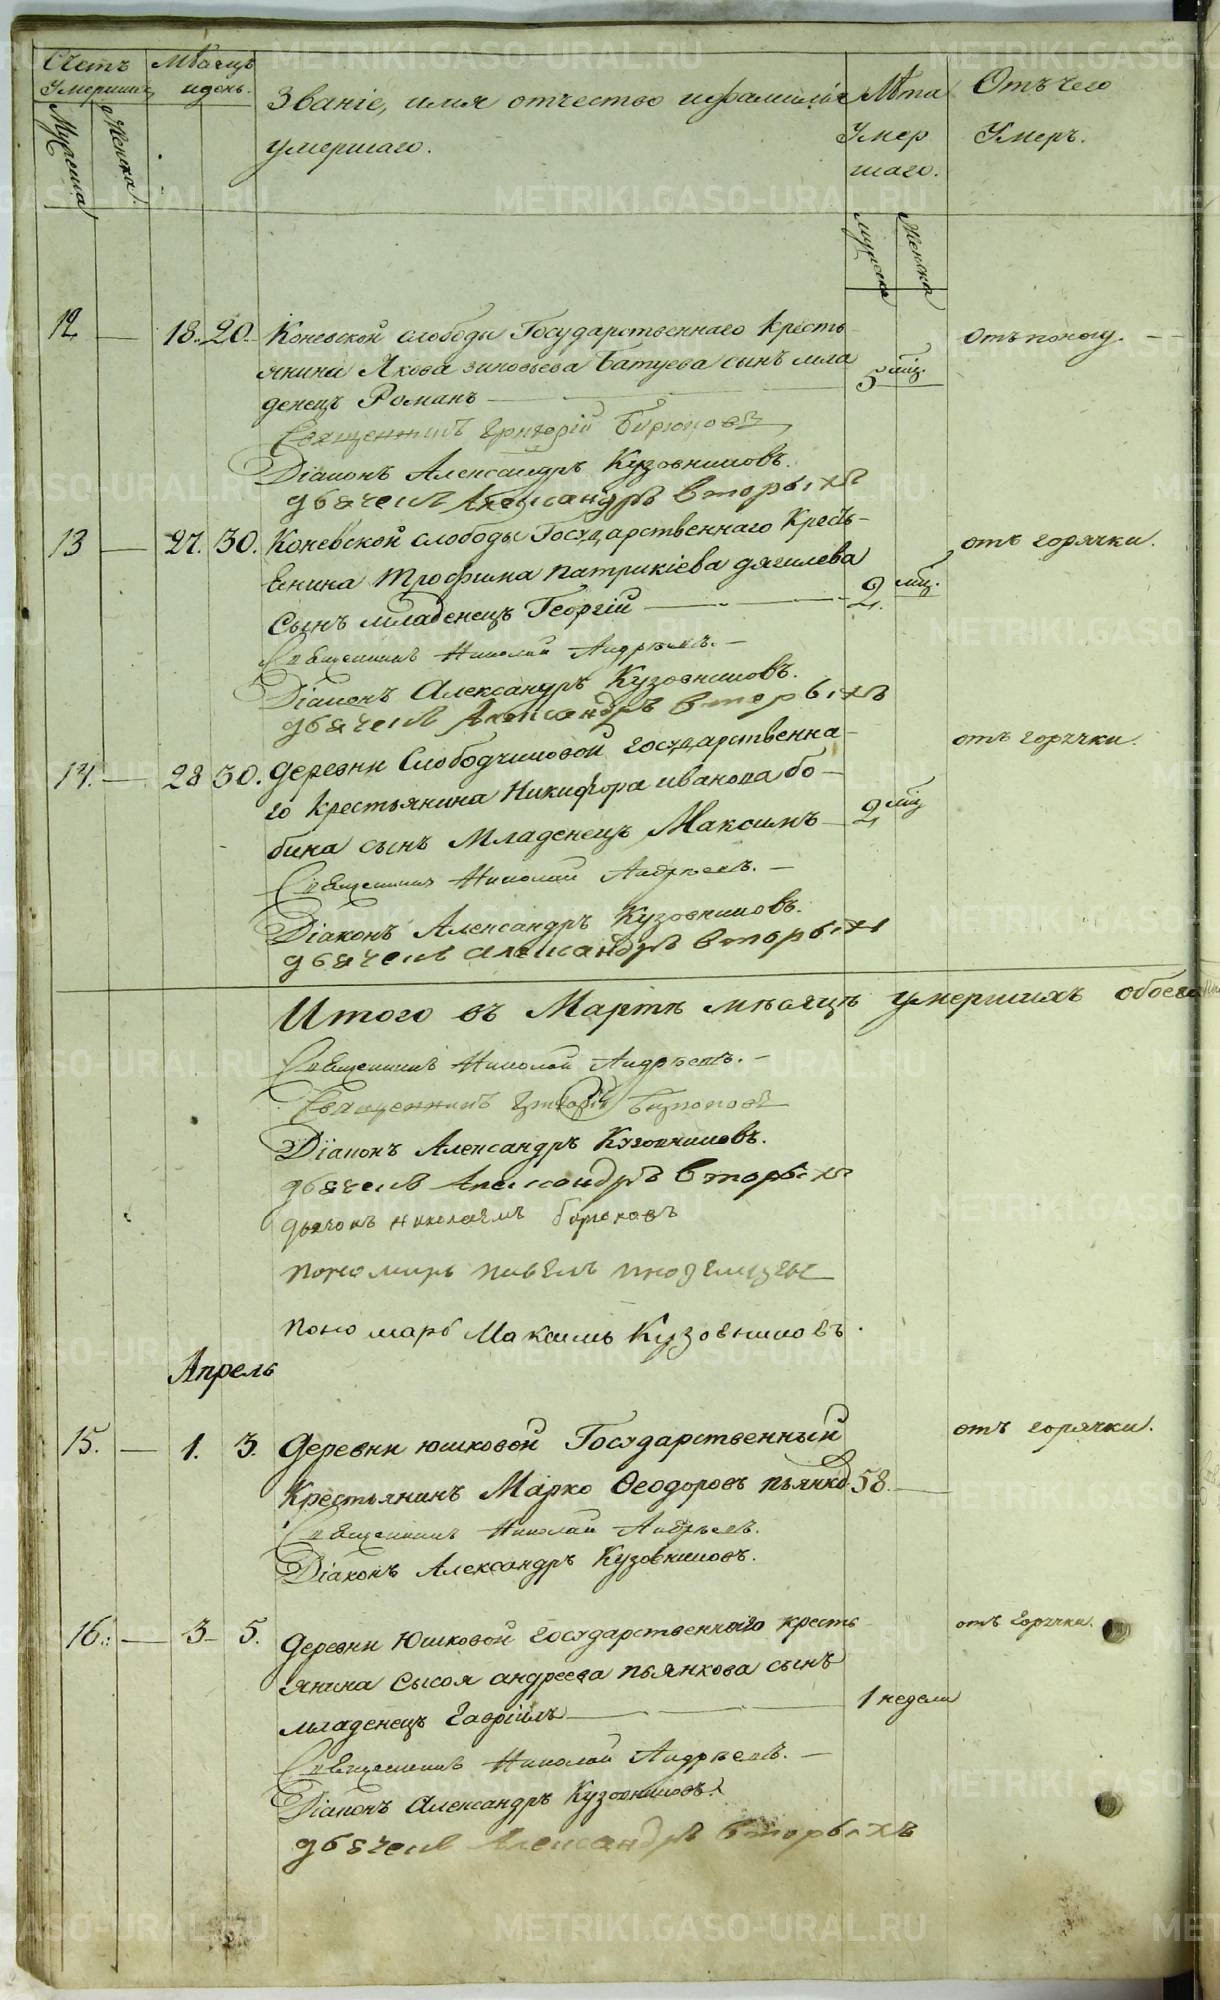 Счетъ умершихъ
Мѣсяцъ и день.
Званіе, имя отчество и фамилія умершаго.
Лѣта умершаго.
Отъ чего умеръ.
Мужеска
Женска
Мужеска
Женска
12 — 18. 20. Коневской слободы Государственнаго кресть-
янина Якова Зиновьева Батуева сынъ мла 5 мц. отъ поносу. —
денецъ Романъ —
Священникъ Григорій Бирюковъ
Діаконъ Александръ Кузовниковъ.
дьячекъ Александръ Вторыхъ
13 — 27. 30. Коневской слободы Государственнаго Кресть- отъ горячки.
енина Трофима Патрикіева дягилева
сынъ младенецъ Георгій — 2 мц.
Священникъ Николай Андреевъ. —
Діаконъ Александръ Кузовниковъ.
дьячекъ Александръ Вторыхъ
14. — 28 30. деревни Слободчиковой государственна- отъ горячки.
го крестьянина Никифора иванова бо-
бина сынъ Младенецъ Максимъ — 2 мц
Священникъ Николай Андреевъ. —
Діаконъ Александръ Кузовниковъ.
дьячекъ Александръ Вторыхъ
Итого въ Мартѣ мѣсяцѣ умершихъ обоего
Священникъ Николай Андреевъ. —
Священникъ Григорій Бирюковъ
Діаконъ Александръ Кузовниковъ.
дьячекъ Александръ Вторыхъ
дьячокъ Николаемъ бирюковъ
пономарь павелъ иноземцевъ
пономарь Максимъ Кузовниковъ.
Апрель
15. — 1. 3. Деревни юшковой Государственный отъ горячки.
Крестьянинъ Марко Ѳеодоровъ пьянков 58. —
Священникъ Николай Андреевъ.
Діаконъ Александръ Кузовниковъ.
16. — 3 5. Деревни Юшковой государственнаго кресть- отъ горячки.
янина Сысоя андреева пьянкова сынъ
младенецъ Гавріилъ — 1 недели
Священникъ Николай Андреевъ. —
Діаконъ Александръ Кузовниковъ.
дьячекъ Александръ Вторыхъ
METRIKI.GASO-URAL.RU